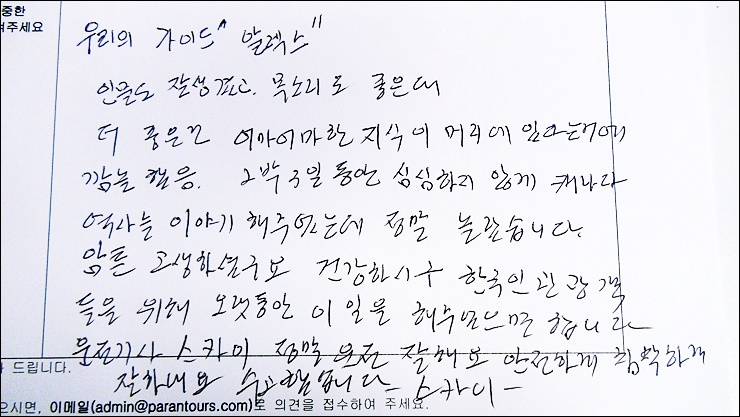 중한
여주세요
우리의 가이드 "알렉스"
인물도 잘생겼고. 목소리도 좋은데
더 좋은건 어마어마한 지식이 머리에 있다는거에
깜놀 했음. 2박3일 동안 심심하지 않게 캐나다
역사를 이야기 해주었는데 정말 놀랐습니다
암튼 고생하셨구요 건강하시구 한국인 관광객
들을 위해 오랫동안 이 일을 해주셨으면 합니다
운전기사 스카이 정말 운전 잘해요 안전하게 침착하게
사 드립니다.
잘하네요 수고했습니다 스카이 -
으시면, 이메일(admin@parantours.com)로 의견을 접수하여 주세요.